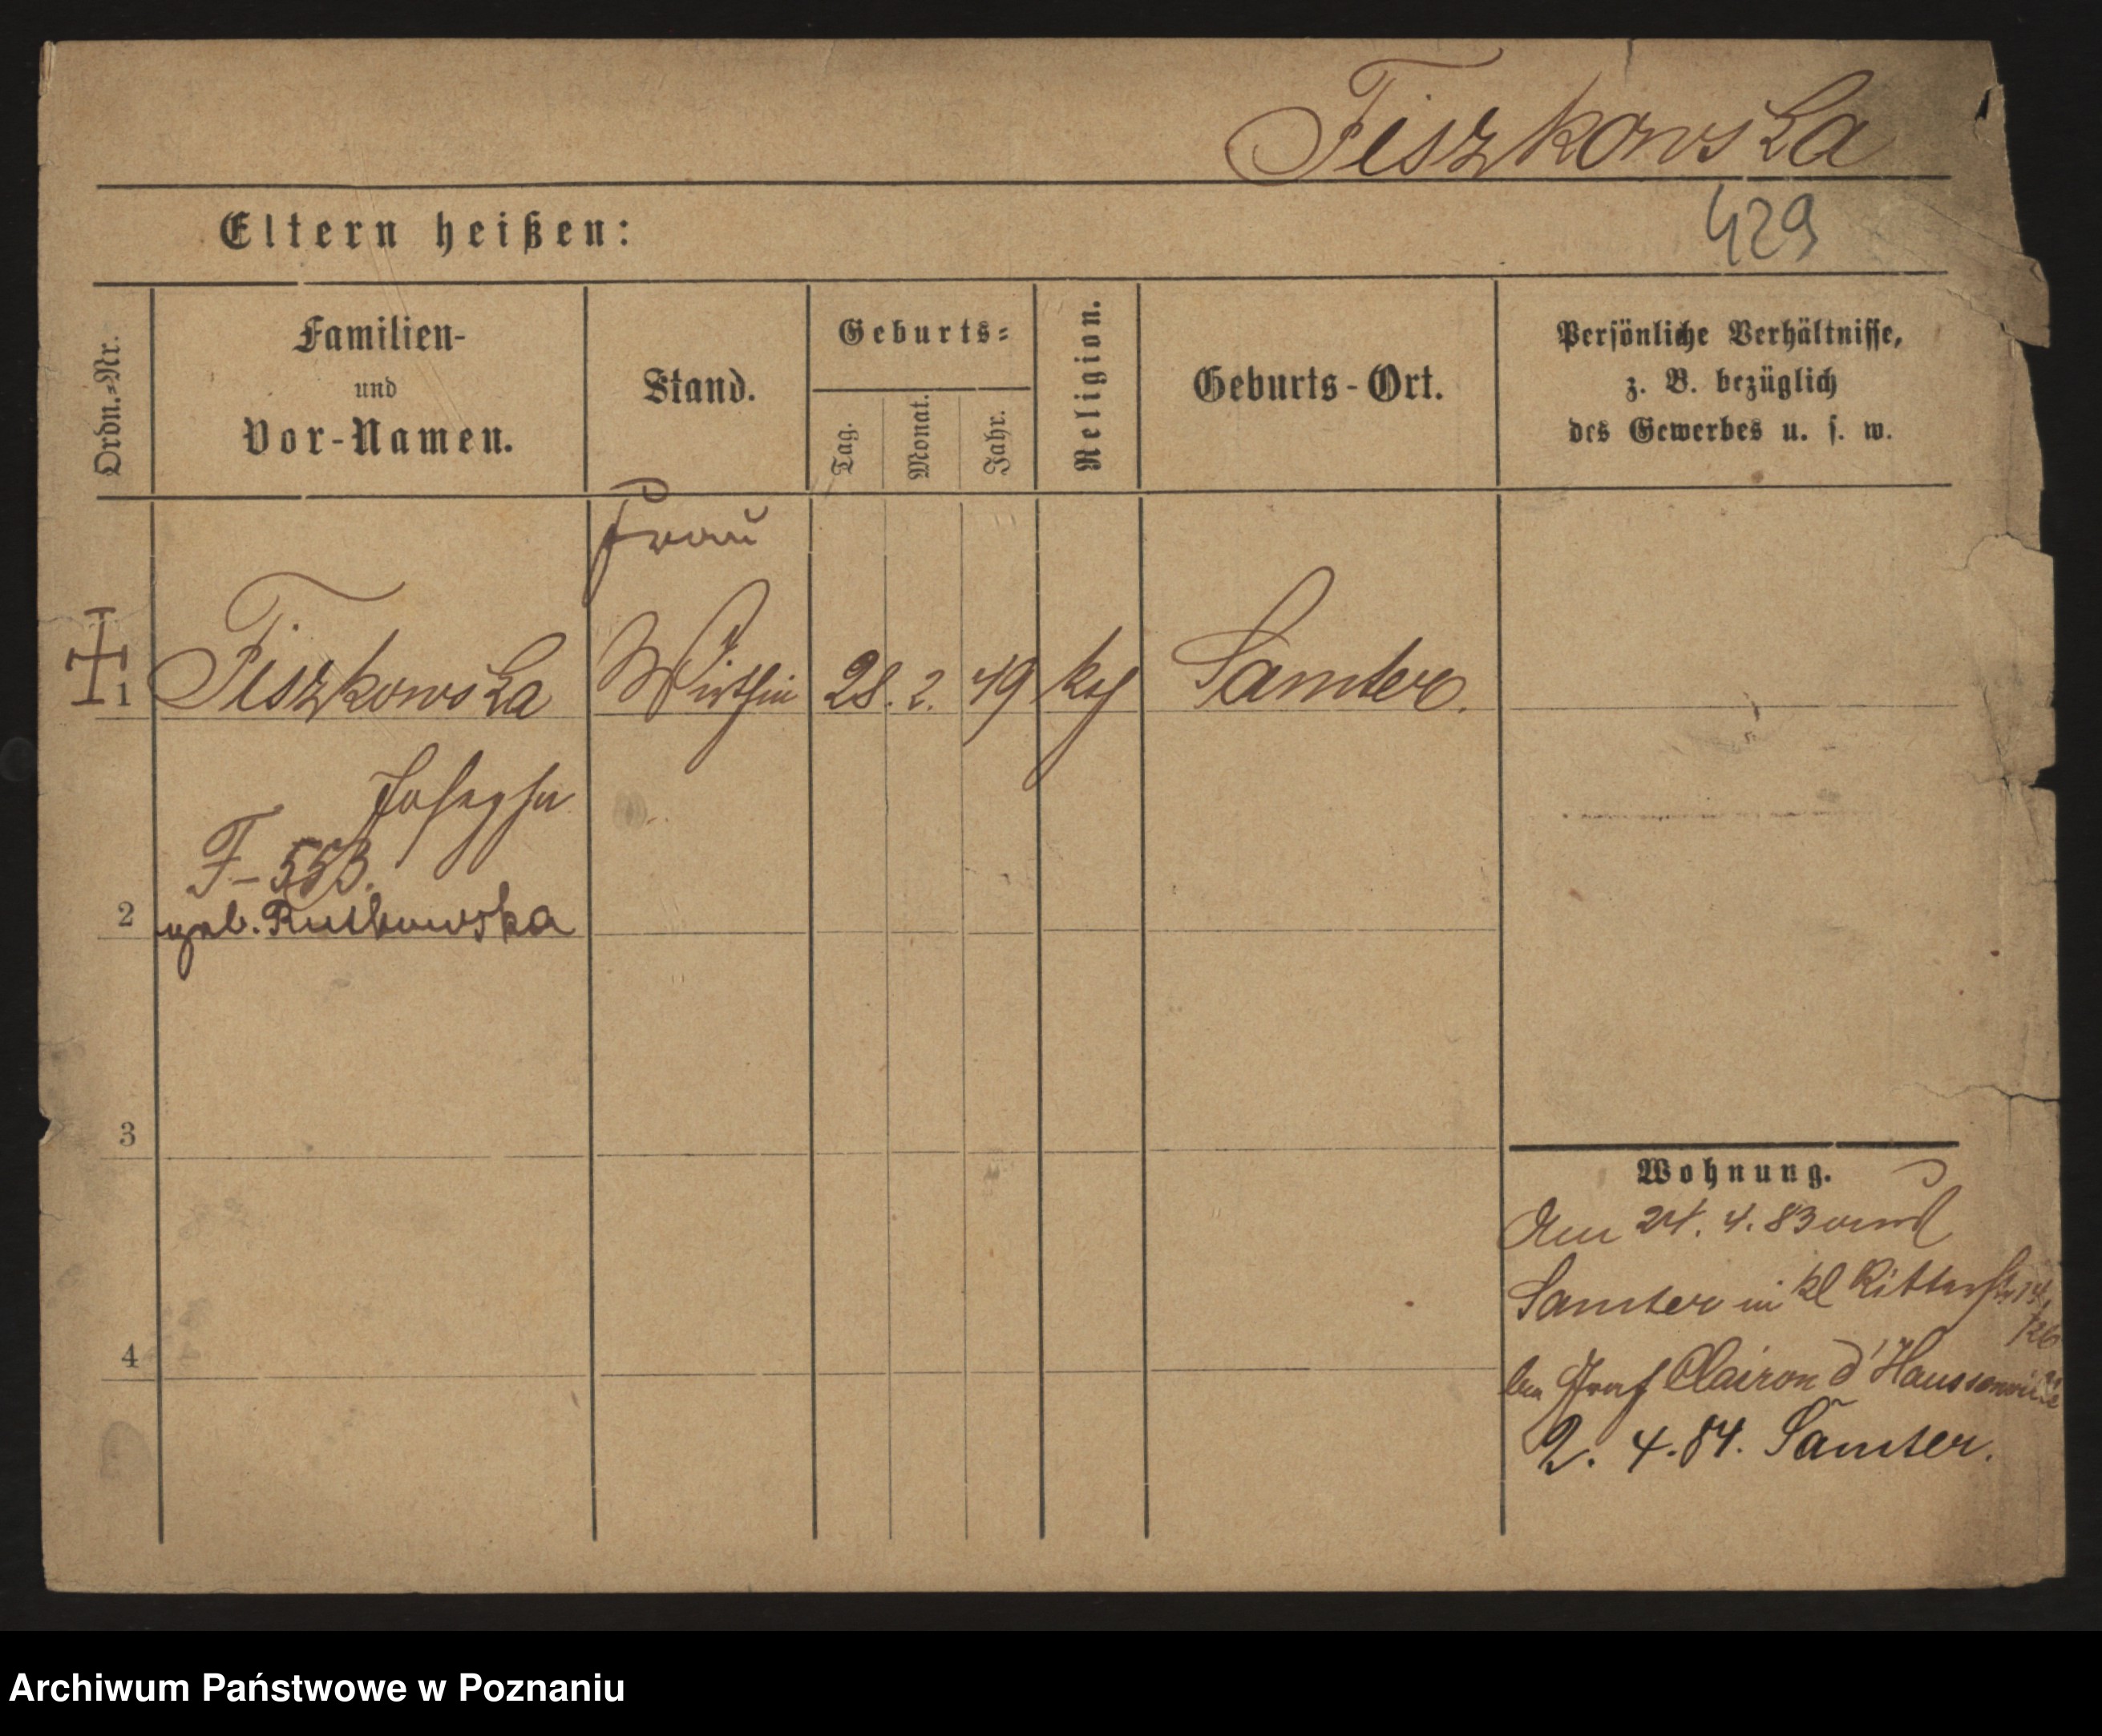 Fiszkowska
429
Eltern heißen:
Ordn.-Nr.
Familien-
und
Vor-Namen.
Stand.
Geburts-
Tag.
Monat.
Jahr.
Religion.
Geburts-Ort.
Persönliche Verhältnisse,
z. B. bezüglich
des Gewerbes u. s. w.
Frau
1 Fiszkowska Wirthin 28. 2. 49 kth Samter.
Josepha
F-553.
2 geb. Rutkowska
3
4
Wohnung.
Am 24. 4. 83 aus
Samter in kl Ritterstr 14
bei Graf Clairon d'Haussonville
2. 4. 84. Samter.
Archiwum Państwowe w Poznaniu